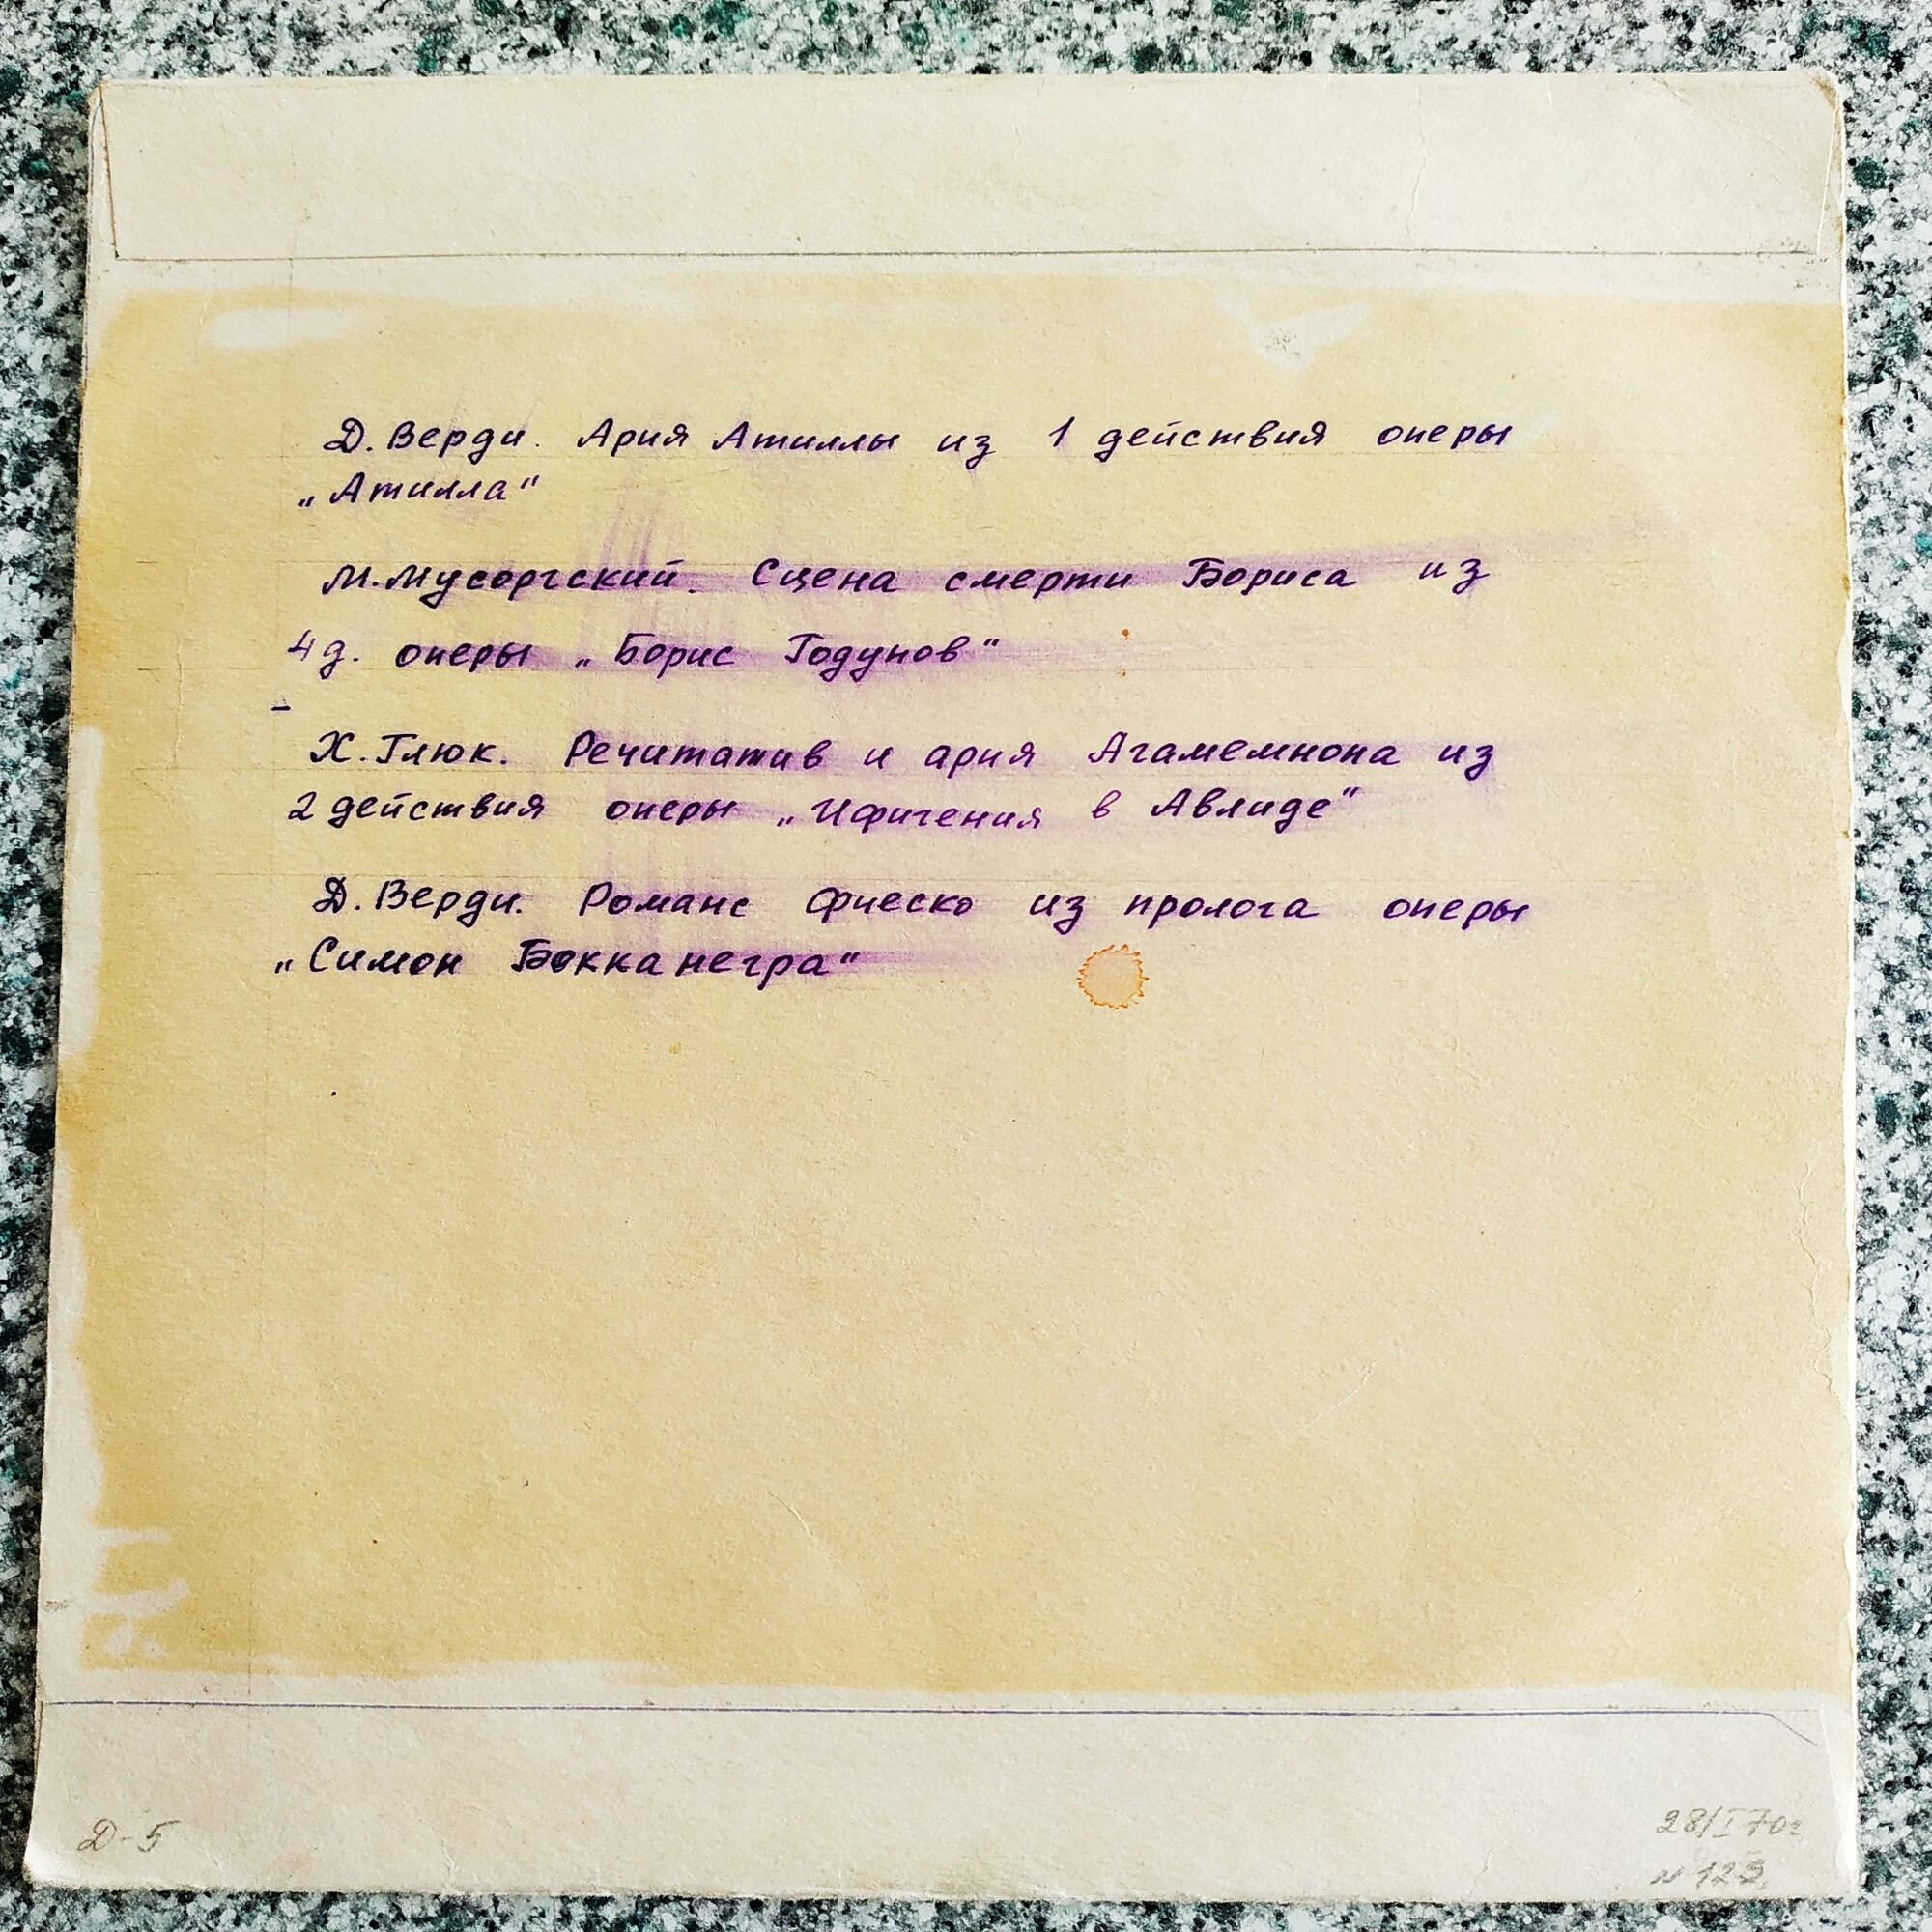 Д. Верди. Ария Атиллы из 1 действия оперы
„Атилла“
М. Мусоргский. Сцена смерти Бориса из
4 д. оперы „Борис Годунов“
Х. Глюк. Речитатив и ария Агамемнона из
2 действия оперы „Ифигения в Авлиде“
Д. Верди. Романс Фиеско из пролога оперы
„Симон Бокканегра“
Д-5
28/I 70г
N 123